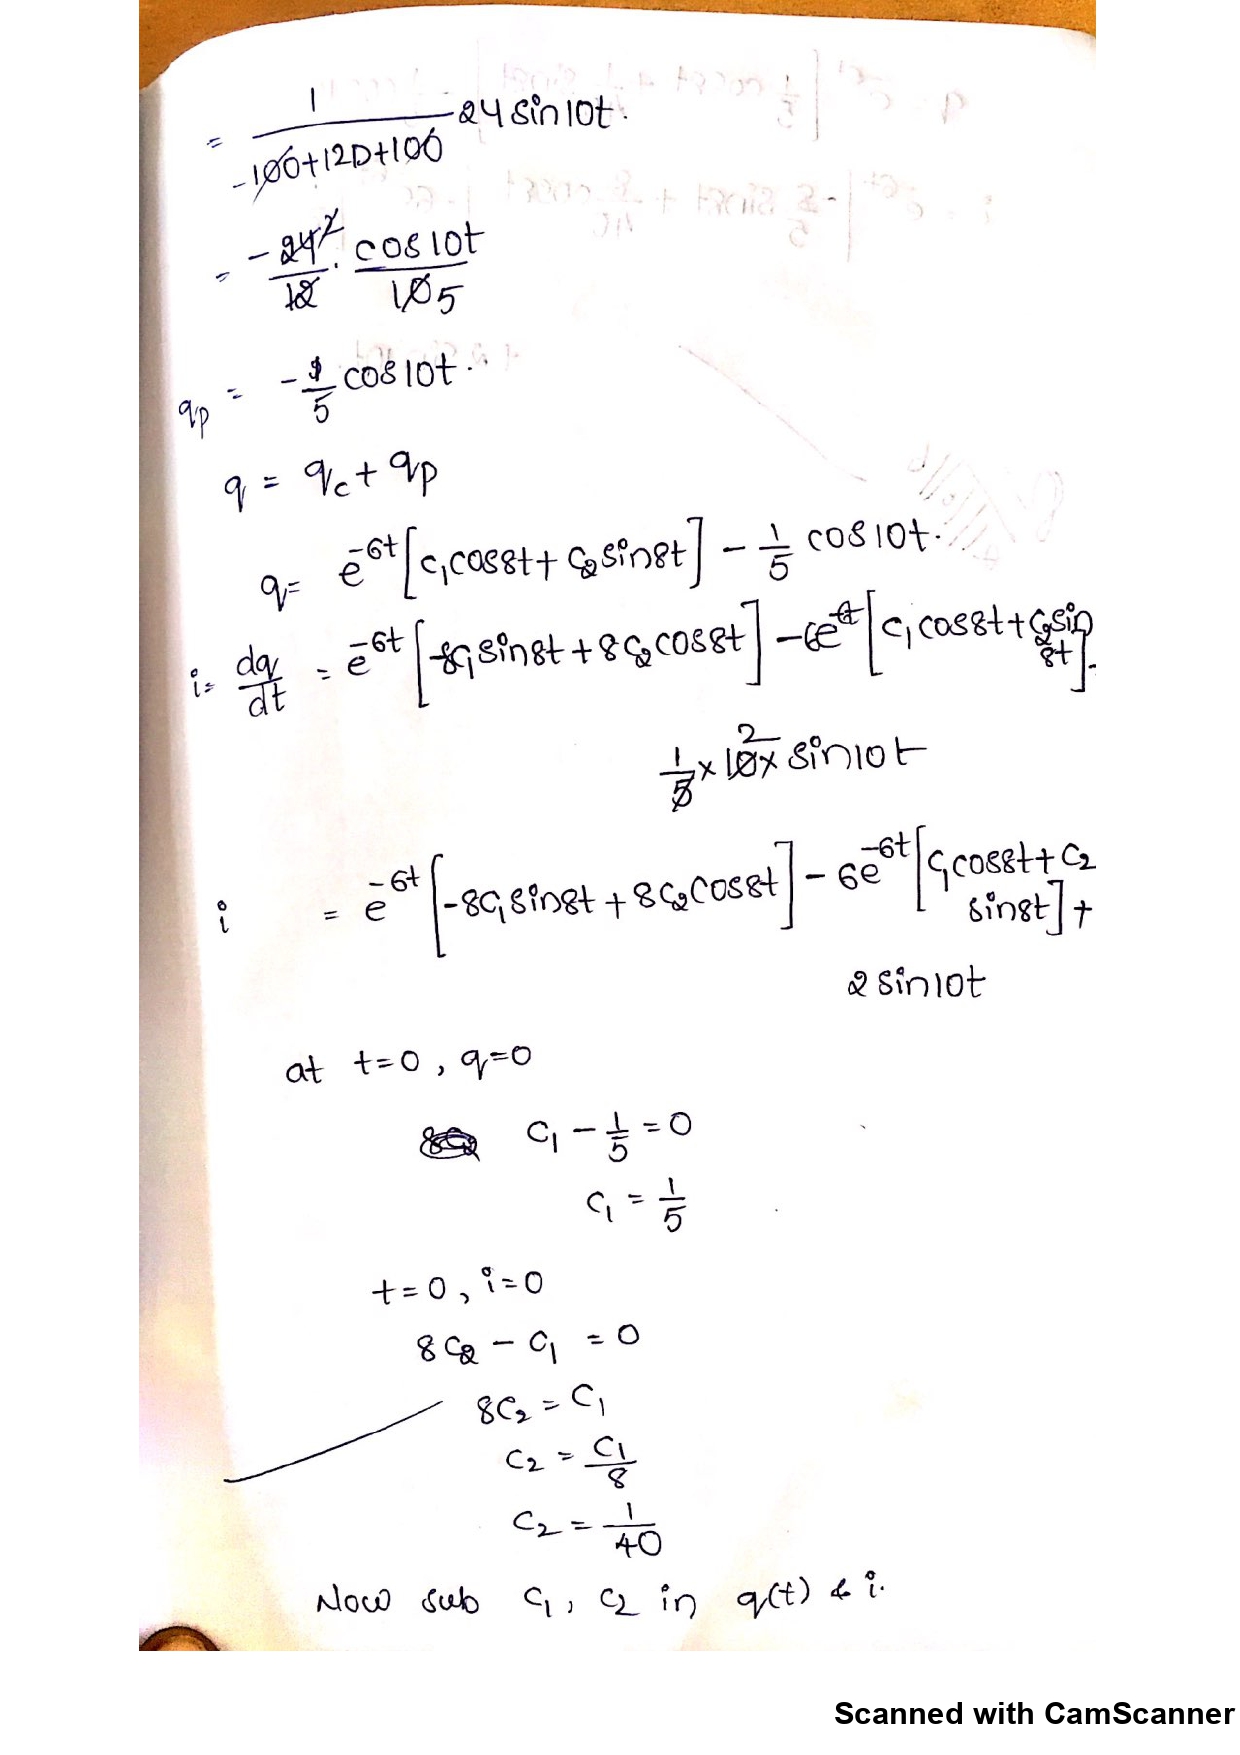 = 1/(-100+12D+100) 24 sin10t.
= -24 2/12 . cos10t/10 5
qp = -1/5 cos10t.
q = qc + qp
q = e^-6t [c1cos8t + c2sin8t] - 1/5 cos10t.
i = dq/dt = e^-6t [-8c1sin8t + 8c2cos8t] - 6e^-6t [c1cos8t + c2sin
8t].
1/5 x 10 2 x sin10t
i = e^-6t [-8c1sin8t + 8c2cos8t] - 6e^-6t [c1cos8t + c2
sin8t] +
2 sin10t
at t=0, q=0
c1 - 1/5 = 0
c1 = 1/5
t=0, i=0
8c2 - c1 = 0
8c2 = c1
c2 = c1/8
c2 = 1/40
Now sub c1, c2 in q(t) & i.
Scanned with CamScanner